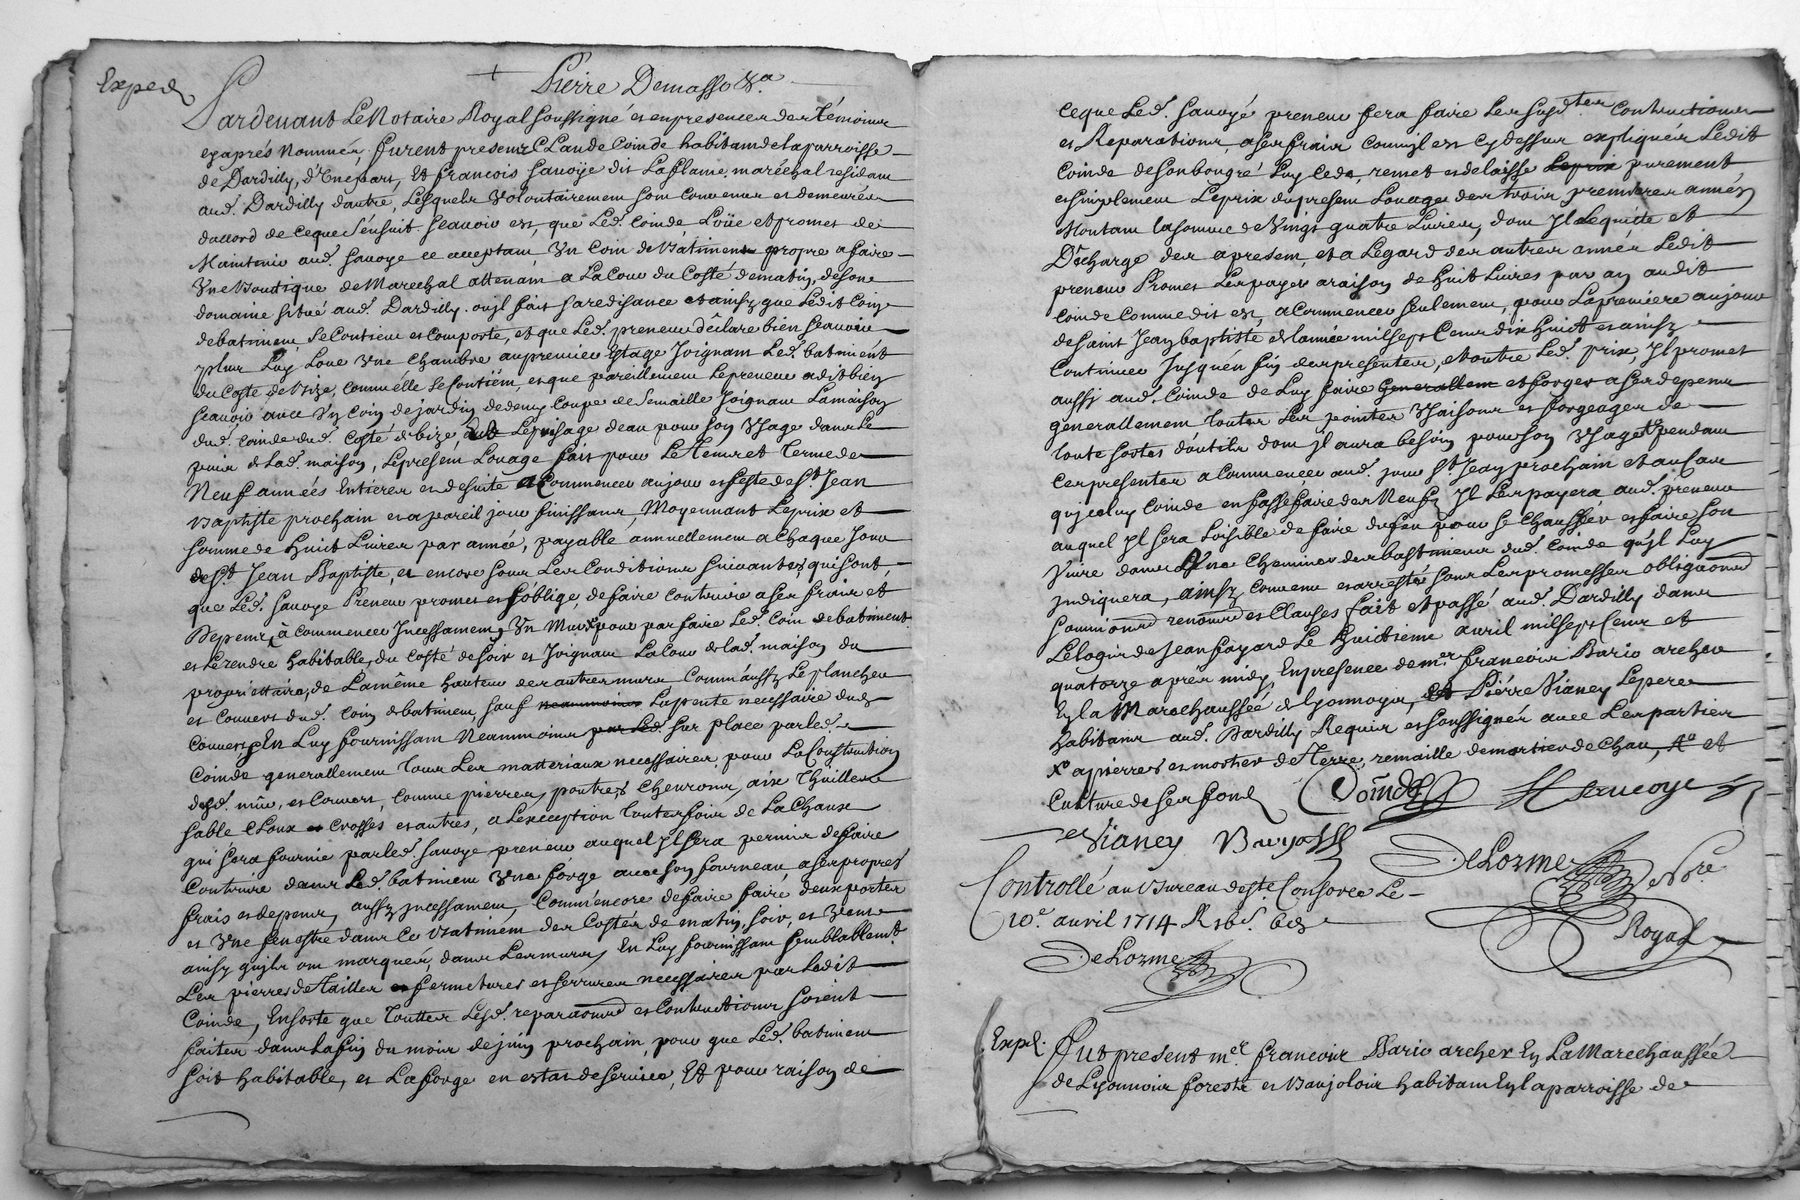 Exped
+ Pierre Demasso &a.
Pardevant Le Notaire Royal soussigné et en presence des Témoins
cy aprés Nommés, furent presens Claude Coinde habitant de la parroisse
de Dardilly, d'une part, Et francois Sauoÿe dit La flame, maréchal residant
aud. Dardilly d'autre, Lesquels Volontairement sont conuenus et demeurés
d'accord de ce que s'ensuit scauoir est, que Led. Coinde Loüe et promet de
Maintenir aud. Sauoye ce acceptant, Un Coin de batiment propre a faire
Une Boutique de Marechal attenant a La Cour du Costé de matin, de son
domaine situé aud. Dardilly. ou il fait sa residance et ainsy que Ledit Coin
de batiment se Contient et comporte, et que Led. preneur déclare bien scauoir
plus Luy Loue Une Chambre au premier Estage Joignant Led. batiment
du Costé de bize, comme elle se Contient, et que pareillement Le preneur a dit bien
scauoir auec Un Coin de jardin de deux Coupes de Semaille Joignant La maison
dud. Coinde dud. Costé de bize, Le puisage d'eau pour son Usage dans Le
puis de Lad. maison, Le present Louage fait pour Le Tems et Terme de
Neuf années Entieres et de suite a Commencer au jour et feste de St. Jean
Baptiste prochain et a pareil jour finissant, Moyennant Le prix et
somme de huit Liures par année, payable annuellement a Chaque Jour
de St. Jean Baptiste, et encore sous Les Conditions suiuantes, qui sont,
que Led. Sauoye Preneur promet et s'oblige, de faire Construire a ses frais et
Depens, à Commencer Incessament, Un Mur pour parfaire Led. Coin de batiment
et Le rendre habitable, du Costé de soir et Joignant La Cour de Lad. maison du
propriettaire, de La même hauteur des autres murs Comm'aussy Le plancher
et Couuert dud. Coin de batiment, sauf neanmoins La pente necessaire dud.
Couuert, En Luy fournissant Neanmoins par Led. sur place par led.
Coinde generallement Tous Les matteriaux necessaires, pour La Construction
desd. mur, et Couuert, Comme pierres, poutres, Cheurons, aix Thuilles
sable Cloux et Crosses et autres, a L'exception Toutesfois de La Chaux
qui sera fournie par led. Sauoye preneur auquel Jl sera permis de faire
Construire dans Led. batiment Une forge auec son fourneau a ses propres
frais et depens, aussy jncessament, Comm'encore de faire faire deux portes
et Une fenestre dans Ce batiment des Costés de matin, soir, et Vent
ainsy qu'jls ont marqués, dans Les murs, En Luy fournissant semblablemt.
Les pierres de Tailles et fermetures et serrures necessaires par Ledit
Coinde, En sorte que Touttes Lesd. reparaõns et Constructions soient
faites dans La fin du mois de juin prochain, pour que Led. batiment
soit habitable, et La forge en estat de seruice, Et pour raison de
Ce que Led. Sauoyé preneur fera faire Les susd.tes Constructions
et Reparations, a ses frais comm'il est cy dessus expliqué Ledit
Coinde de son bon gré Luy Cede, remet et delaisse Le prix purement
et simplement Le prix du present Louage des trois premieres années
Montant la somme de Vingt quatre Liures, dont Jl Le quitte et
Décharge des a present, et a L'egard des autres années Ledit
preneur Promet Les payer a raison de huit Liures par an audit
Coinde Comme dit est, a Commencer seulement, pour La premiere au jour
de saint Jean baptiste de L'année mil sept Cens dix huict et ainsy
Continuer Jusqu'en fin des presentes, et outre Led. prix Jl promet
aussy aud. Coinde de Luy faire generallem et forger a ses depens
generallement Toutes Les pointes Usaisons et forgeages de
toute sortes d'outils dont jl aura besoin pour son Usage pendant
Ces presentes a Commencer aud. jour St. Jean prochain et au Cas
qu'jceluy Coinde en fasse faire des Neufs, Jl Les payera aud. preneur
auquel Jl sera Loisible de faire du feu pour se Chauffer et faire son
Viure dans Une Cheminée des bastimens dud. Coinde qu'jl Luy
jndiquera, ainsy Conuenu et arresté sous Les promesses obligaons
soumionsrenonons et Clauses fait et passé aud. Dardilly dans
Le logis de Jean fayard Le huictieme auril mil sept Cens et
quatorze aprés midy, En presence de mr. francois Bario archer
En la Marechaussée de Lyonnois, et Piérre Vianey Le pere
habitans aud. Dardilly Requis et soussignés auec Les parties
X a pierres et mortier de Terre, remaille de mortier de Chau, et
Culture de ses fond
Coinde F Sauoye
Vianey Baryot
DeLorme Nore.
Controllé au Bureau de ste. Consorce Le
10e. auril 1714 R 16s. 6d
Royal
DeLorme
Exped.
Fut present mer. francois Bario archer En La Marechaussée
de Lyonnois forestz et Baujolois habitant En la parroisse de